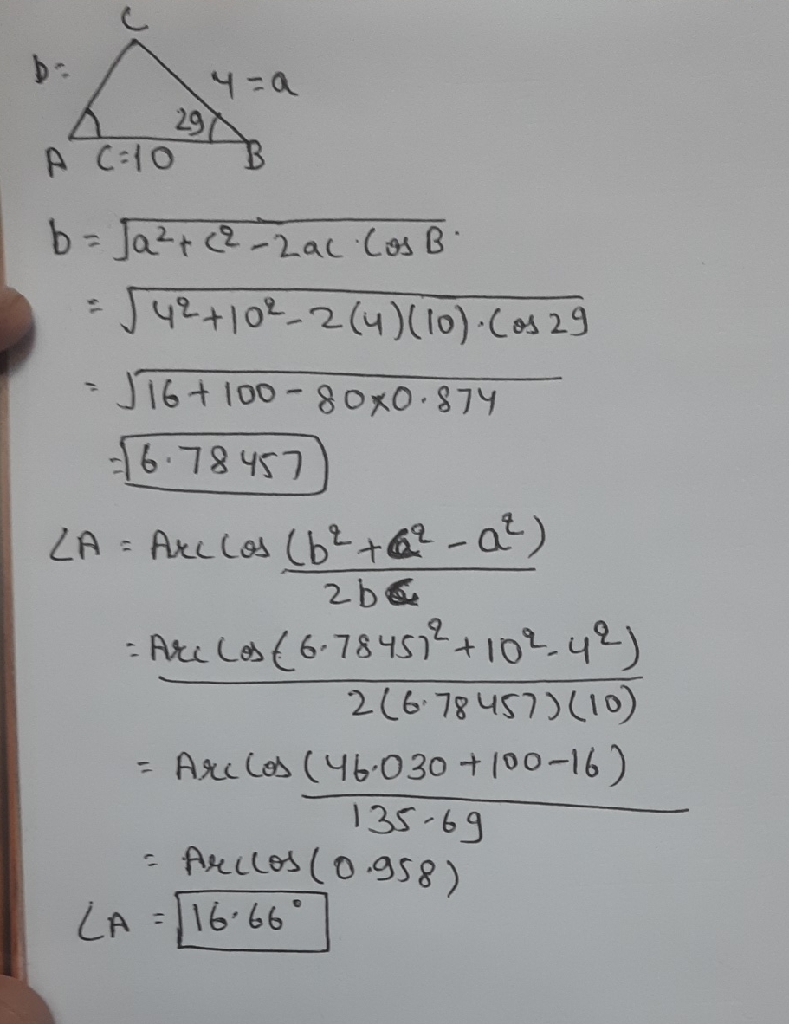 C
b= 4=a
29
A C=10 B
b = √a²+c²-2ac·Cos B
= √4²+10²-2(4)(10)·Cos 29
= √16+100-80×0.874
= 6.78457
∠A = Arc Cos (b²+c²-a²)
2bc
= Arc Cos (6.78457²+10²-4²)
2(6.78457)(10)
= Arc Cos (46.030+100-16)
135.69
= Arc Cos (0.958)
∠A = 16.66°